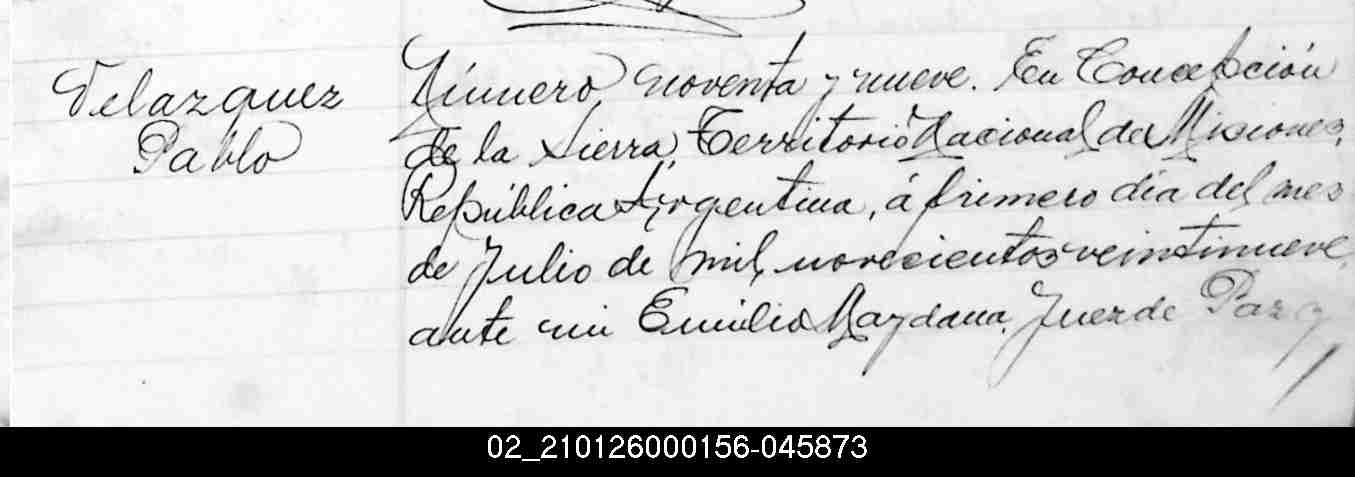 Velazquez
Pablo
Número noventa y nueve. En Concepción
de la Sierra, Territorio Nacional de Misiones,
República Argentina, á primero dia del mes
de Julio de mil novecientos veintinueve,
ante mi Emilio Maydana, Juez de Paz y
02_210126000156-045873